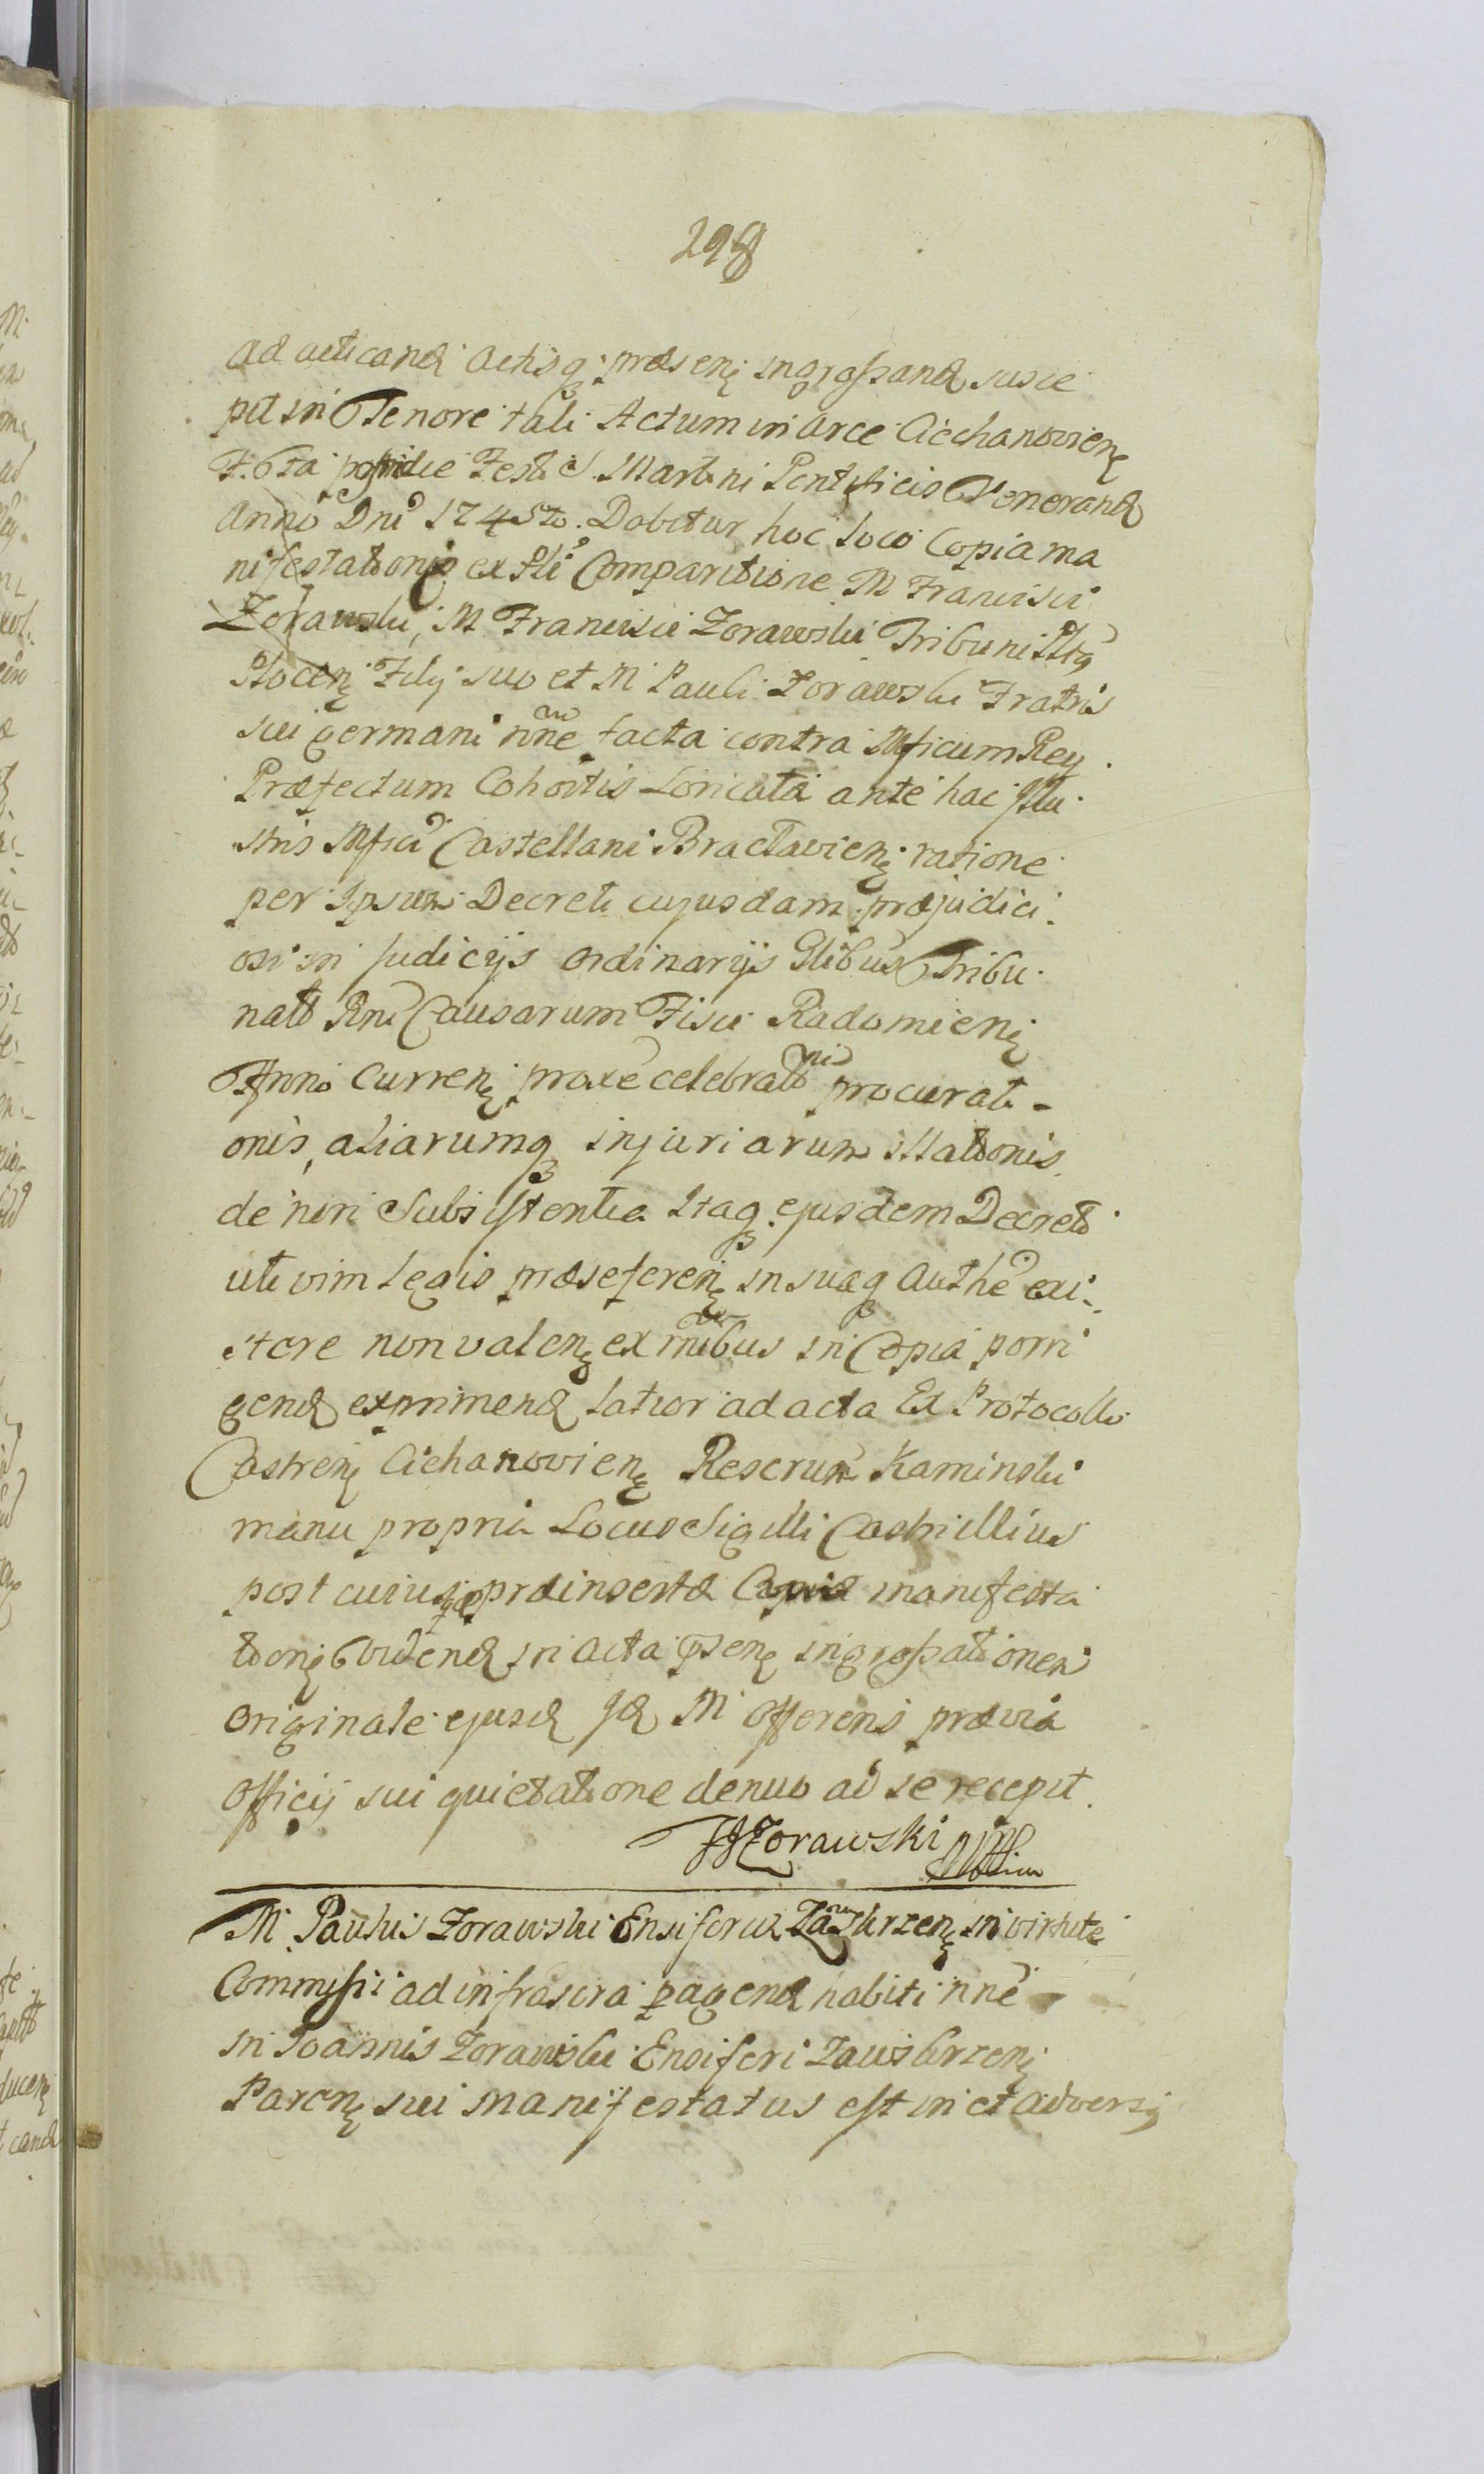 298
ad acticand actisq. præsenѯ ingrossand susce
pit in Tenore tali Actum in arce Ciechanovienѯ
F. 6ta postridie Festi S. Martini Pontificis Venerand
Anno Dni 1745to. Dabitur hoc loco Copia ma
nifestationis ex Pli Comparitione M Francisci
Zorawski, M Francisci Zorawski Tribuni
Plocenѯ Filij suo et M Pauli Zorawski Fratris
sui germani nne facta contra Mficum Rey
Præfectum Cohortis Loricatæ ante hac Illu
stris Mfici Castellani Braclavienѯ ratione
per Ipsum Decreti cujusdam præjudici
osi in Judicijs ordinarijs Glibus Tribu
nalis Rni Causarum Fisci Radomienѯ
Anno Currenѯ proxe celebratis procurati-
onis, aliarumq injuriarum illationis
de non Subsistentia Itaq. ejusdem Decreti
uti vim Legis præseferenѯ in suaq Authe exi-
stere non valenѯ ex rnibus in Copia porri
gend exprimend latior ad acta Ex Protocollo
Castrenѯ Cichanovienѯ Rescrum Kaminski
manu propria Locus Sigilli Castri Illius
post cuius præinsertæ Copiæ manifesta
tionѯ in acta pѯsenѯ ingrossationem
Originale ejusd Id M Offerens prævia
Officij sui quietatione denuo ad se recepit.
Zorawski
M Paulus Zorawski Ensiferid Zawskrzenѯ in virtute
Commissi ad infrascra pagend habiti nne
M Joannis Zorawski Ensiferi Zawskrzenѯ
Parenѯ sui manifestatus est in et adversѯ